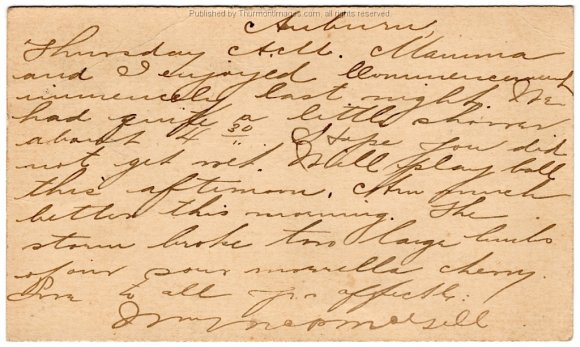 Published by Thurmontimages.com, all rights reserved
Auburn,
Thursday A.M. Mamma
and I enjoyed Commencement
immencely last night. We
had quite a little shower
about 4 30 Hope you did
not get wet. Will play ball
this afternoon. Am much
better this morning. The
storm broke two large limbs
of our sour morrella cherry.
to all